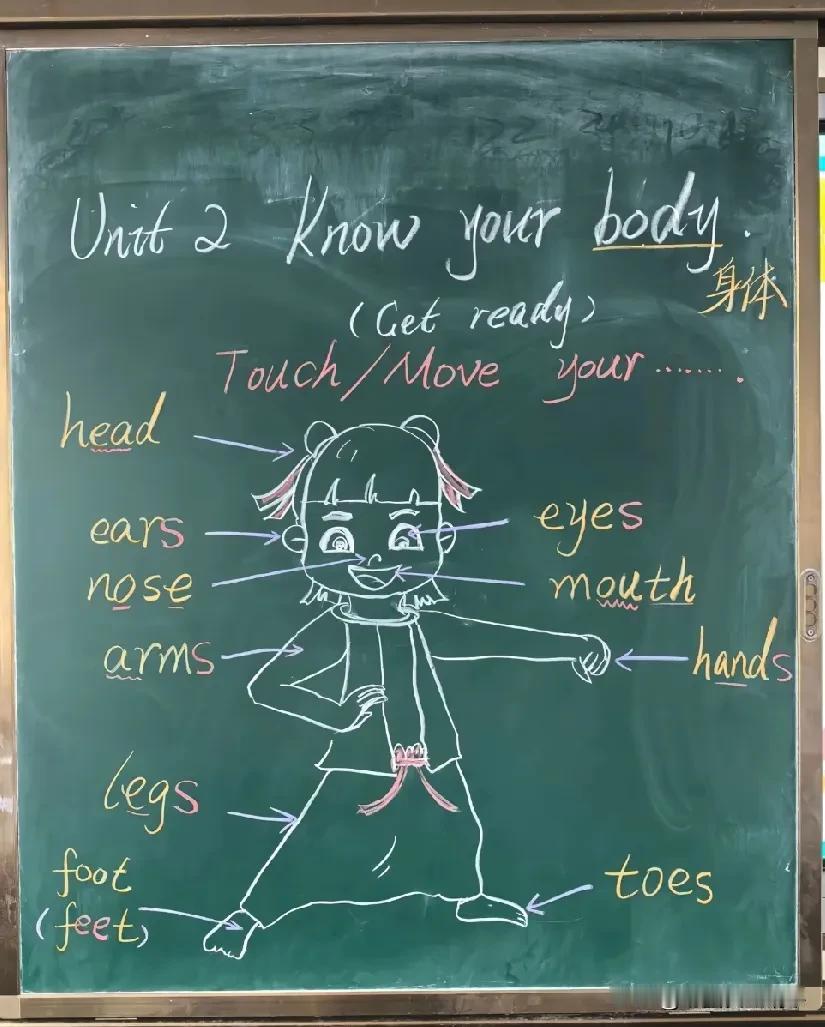 Unit 2 Know your body.
身体
(Get ready)
Touch/Move your ........
head
ears
eyes
nose
mouth
arms
hands
legs
foot
toes
(feet)